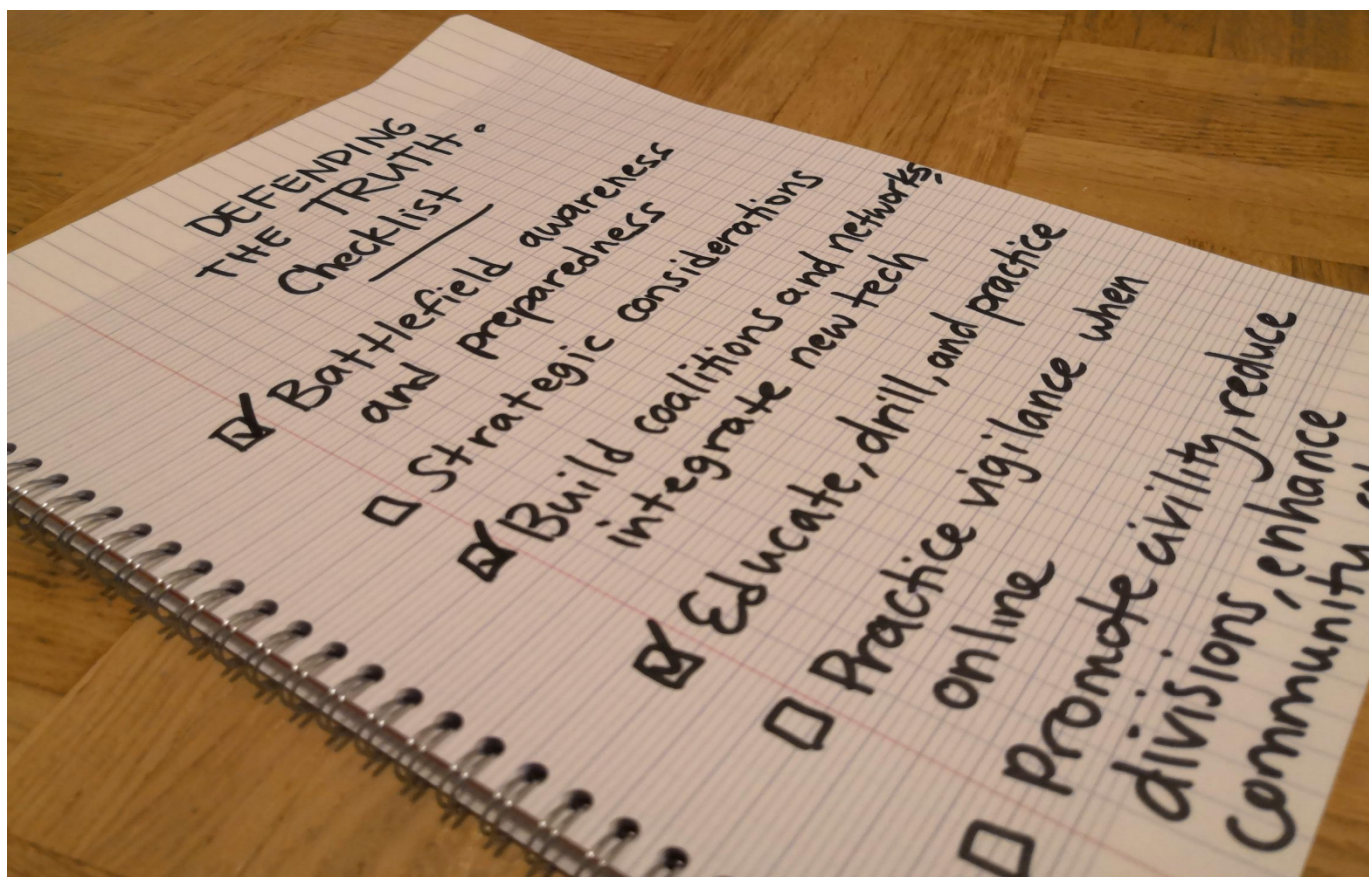 DEFENDING
THE TRUTH.
Checklist
☑ Battlefield awareness
and preparedness
☐ Strategic considerations
☑ Build coalitions and networks,
integrate new tech
☑ Educate, drill, and practice
☐ Practice vigilance when
online
☐ Promote civility, reduce
divisions, enhance
community